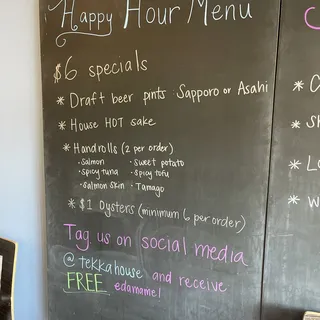 Happy Hour Menu
$6 specials
* Draft beer pints: Sapporo or Asahi
* House HOT sake
* Handrolls (2 per order)
· Salmon · sweet potato
· spicy tuna · spicy tofu
· salmon skin · Tamago
* $1 Oysters (minimum 6 per order)
Tag us on social media
@tekkahouse and receive
FREE edamame!